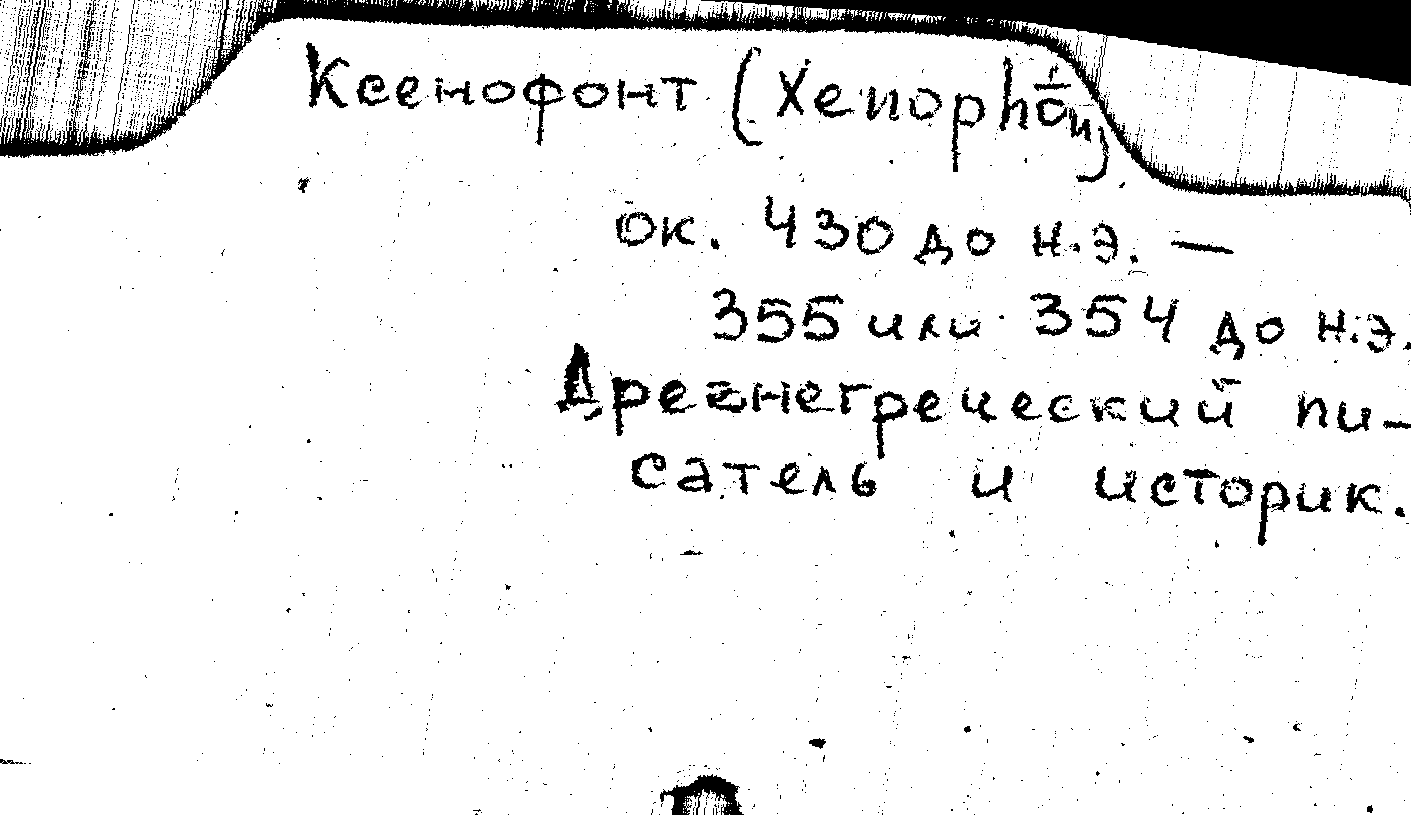 Ксенофонт (Xenophō̇n)
ок. 430 до н.э. —
355 или 354 до н.э.
Древнегреческий пи-
сатель и историк.